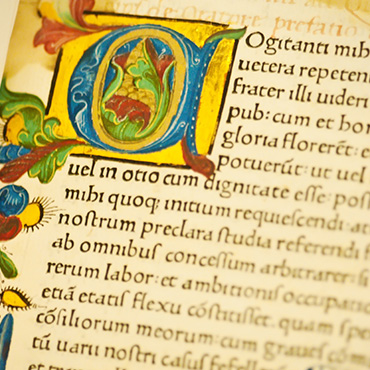 de Oratore prefatio
Ogitanti mih
uetera repeten
frater illi uideri
pub: cum et hon
gloria florerẽt: e
potuerũt: ut uel
uel in otio cum dignitate esse: poss
mihi quoq; initium requiescendi: at
nostrum preclara studia referendi f
ab omnibus concessum arbitrarer: si
rerum labor: et ambitionis occupatio
etiã etatis flexu cõstitisset. quam spe
cõsiliorum meorum: cum graues cõm
tũ uarii nostri casus fefeller
et transtulerunt